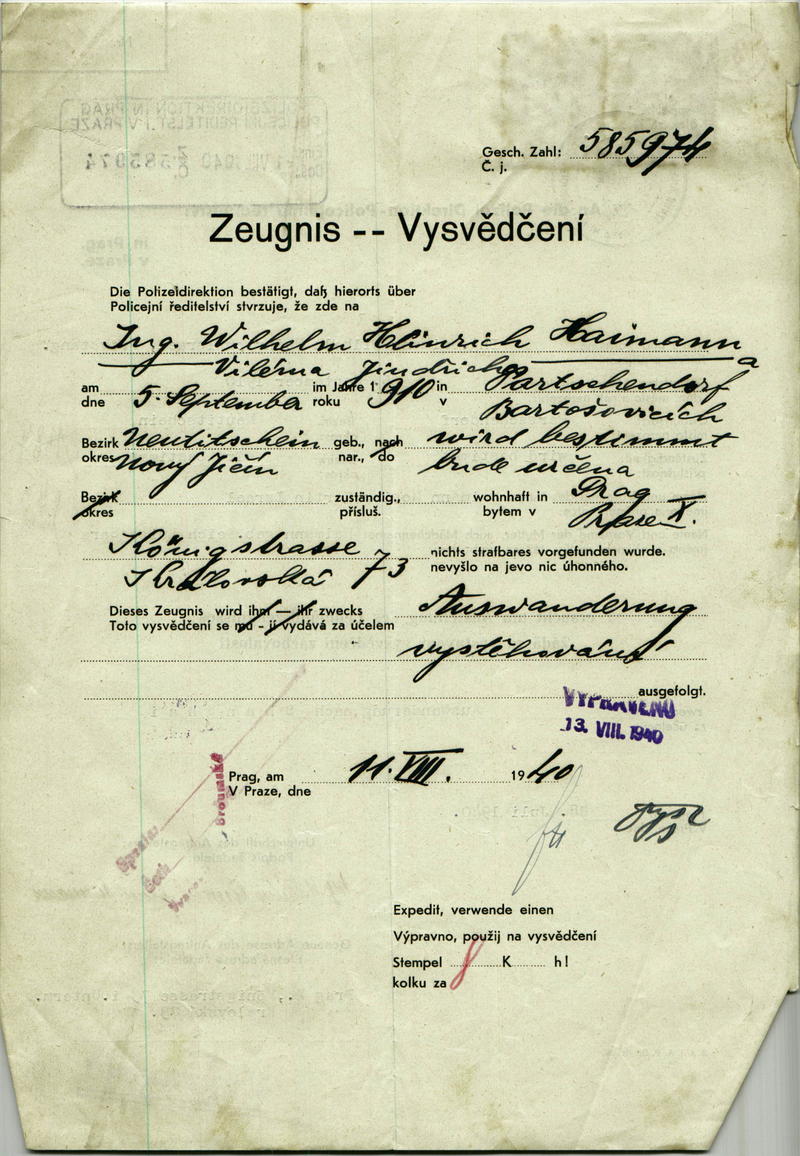 Gesch. Zahl: 585974
Č. j.
Zeugnis -- Vysvědčení
Die Polizeidirektion bestätigt, daß hierorts über
Policejní ředitelství stvrzuje, že zde na
Ing. Wilhelm Heinrich Haimann
Viléma Jindřicha a
am 5. September im Jahre 1910 in Partschendorf
dne roku v Bartošovicích
Bezirk Neutitschein geb., nach wird bestimmt
okres Nový Jičín nar., do bude určena
Bezirk zuständig., wohnhaft in Prag
okres přísluš. bytem v Praze X.
Königstrasse 73 nichts strafbares vorgefunden wurde.
Královská nevyšlo na jevo nic úhonného.
Dieses Zeugnis wird ihm — ihr zwecks Auswanderung
Toto vysvědčení se mu - jí vydává za účelem
vystěhování
ausgefolgt.
VYPRAVENO
13. VIII. 1940
Prag, am 11. VIII. 1940
V Praze, dne
Expedit, verwende einen
Výpravno, použij na vysvědčení
Stempel 8 K h!
kolku za